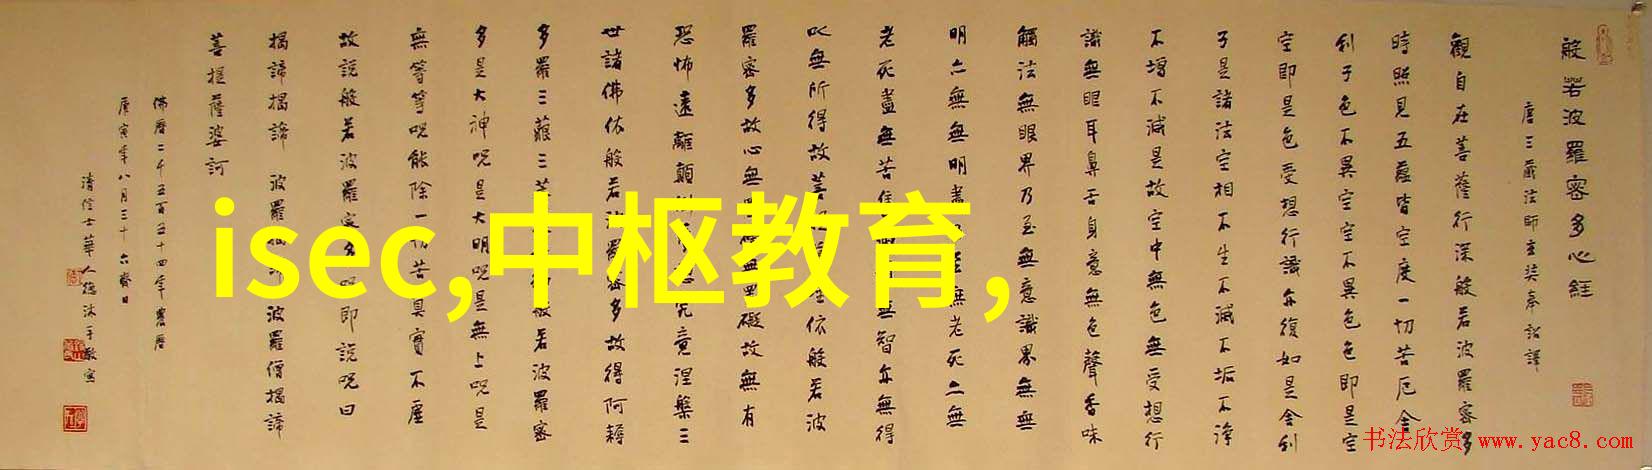 般若波羅密多心經
唐三藏法師玄奘奉詔譯
觀自在菩薩行深般若波羅密多
時照見五蘊皆空度一切苦厄舍
利子色不異空空不異色色即是空
空即是色受想行識亦復如是舍利
子是諸法空相不生不滅不垢不淨
不增不減是故空中無色無受想行
識無眼耳鼻舌身意無色聲香味
觸法無眼界乃至無意識界無無
明亦無無明盡至無老死亦無
老死盡無苦集無智亦無得
以無所得故菩依般若波
羅密多故心無罣礙故無有
恐怖遠離顛倒究竟涅槃三
世諸佛依般若波羅密多故得阿耨
多羅三藐三菩般若波羅密
多是大神咒是大明咒是無上咒是
無等等咒能除一切苦真實不虛
故說般若波羅密多咒即說咒曰
揭諦揭諦 波羅揭諦 波羅僧揭諦
菩提薩婆訶
佛曆二千五百五十四年農曆
庚寅年八月三十六齋日
清信士華人德沐手敬寫
isec,中枢教育,
书法欣赏 www.yac8.com